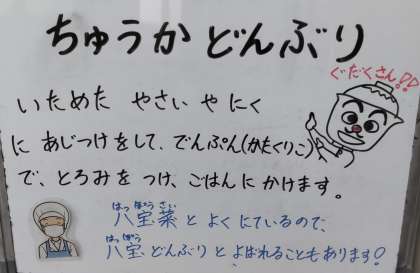 ちゅうか どんぶり
ぐだくさん!!
いためた やさい や にく
に あじつけをして、でんぷん(かたくりこ)
で、とろみを つけ、ごはんに かけます。
はっぽうさい
八宝菜 と よく にているので、
はっぽう
八宝 どんぶり と よばれることもあります!